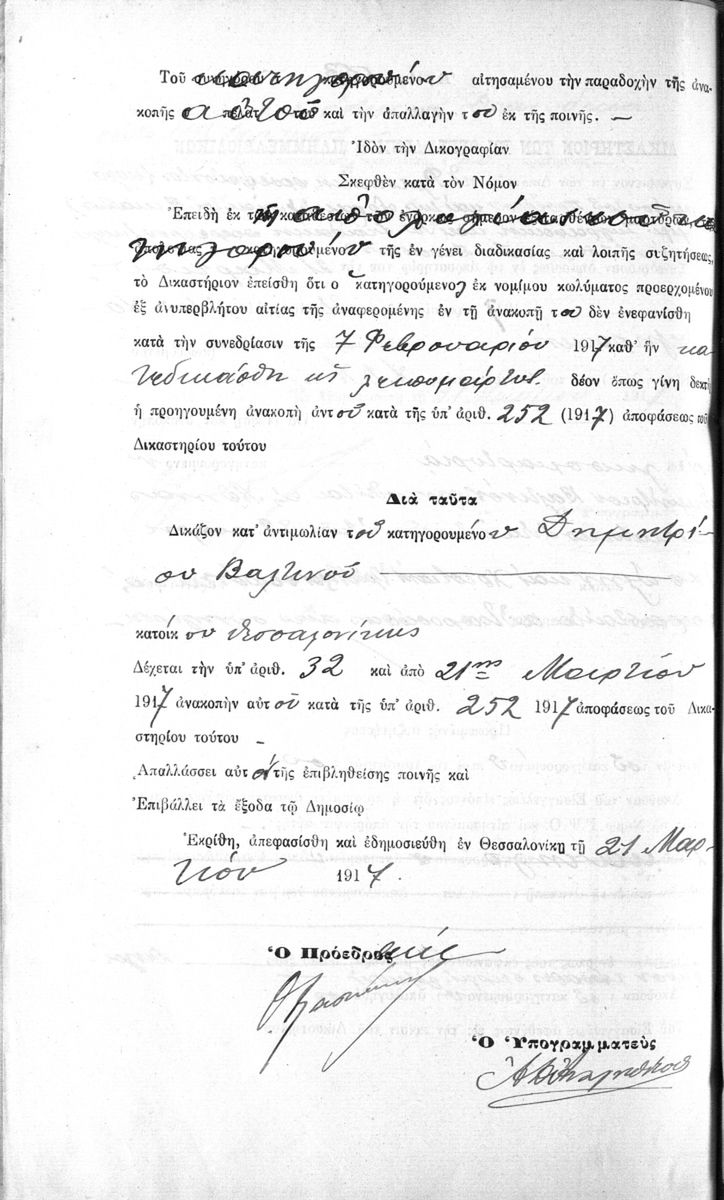 Τοῦ αἰτησαμένου τὴν παραδοχὴν τῆς ἀνα-
κοπῆς αὐτοῦ καὶ τὴν ἀπαλλαγὴν του ἐκ τῆς ποινῆς. —
Ἰδὸν τὴν Δικογραφίαν
Σκεφθὲν κατὰ τὸν Νόμον
Ἐπειδὴ ἐκ
τῆς ἐν γένει διαδικασίας καὶ λοιπῆς συζητήσεως,
τὸ Δικαστήριον ἐπείσθη ὅτι ὁ κατηγορούμενος ἐκ νομίμου κωλύματος προερχομένου
ἐξ ἀνυπερβλήτου αἰτίας τῆς ἀναφερομένης ἐν τῇ ἀνακοπῇ του δὲν ἐνεφανίσθη
κατὰ τὴν συνεδρίασιν τῆς 7 Φεβρουαρίου 1917 καθ' ἣν κα-
τεδικάσθη ὡς λιπομάρτυς. δέον ὅπως γίνῃ δεκτὴ
ἡ προηγουμένη ἀνακοπὴ ἀυτοῦ κατὰ τῆς ὑπ' ἀριθ. 252 (1917) ἀποφάσεως τοῦ
Δικαστηρίου τούτου
Διὰ ταῦτα
Δικάζον κατ' ἀντιμωλίαν τοῦ κατηγορουμένου Δημητρί-
ου Βαλτινοῦ
κατοίκου Θεσσαλονίκης
Δέχεται τὴν ὑπ' ἀριθ. 32 καὶ ἀπὸ 21ης Μαρτίου
1917 ἀνακοπὴν αὐτοῦ κατὰ τῆς ὑπ' ἀριθ. 252 1917 ἀποφάσεως τοῦ Δικα-
στηρίου τούτου —
Ἀπαλλάσσει αὐτὸν τῆς ἐπιβληθείσης ποινῆς καὶ
Ἐπιβάλλει τὰ ἔξοδα τῷ Δημοσίῳ
Ἐκρίθη, ἀπεφασίσθη καὶ ἐδημοσιεύθη ἐν Θεσσαλονίκῃ τῇ 21 Μαρ-
τίου 1917.
Ὁ Πρόεδρος
Ὁ Ὑπογραμματεὺς